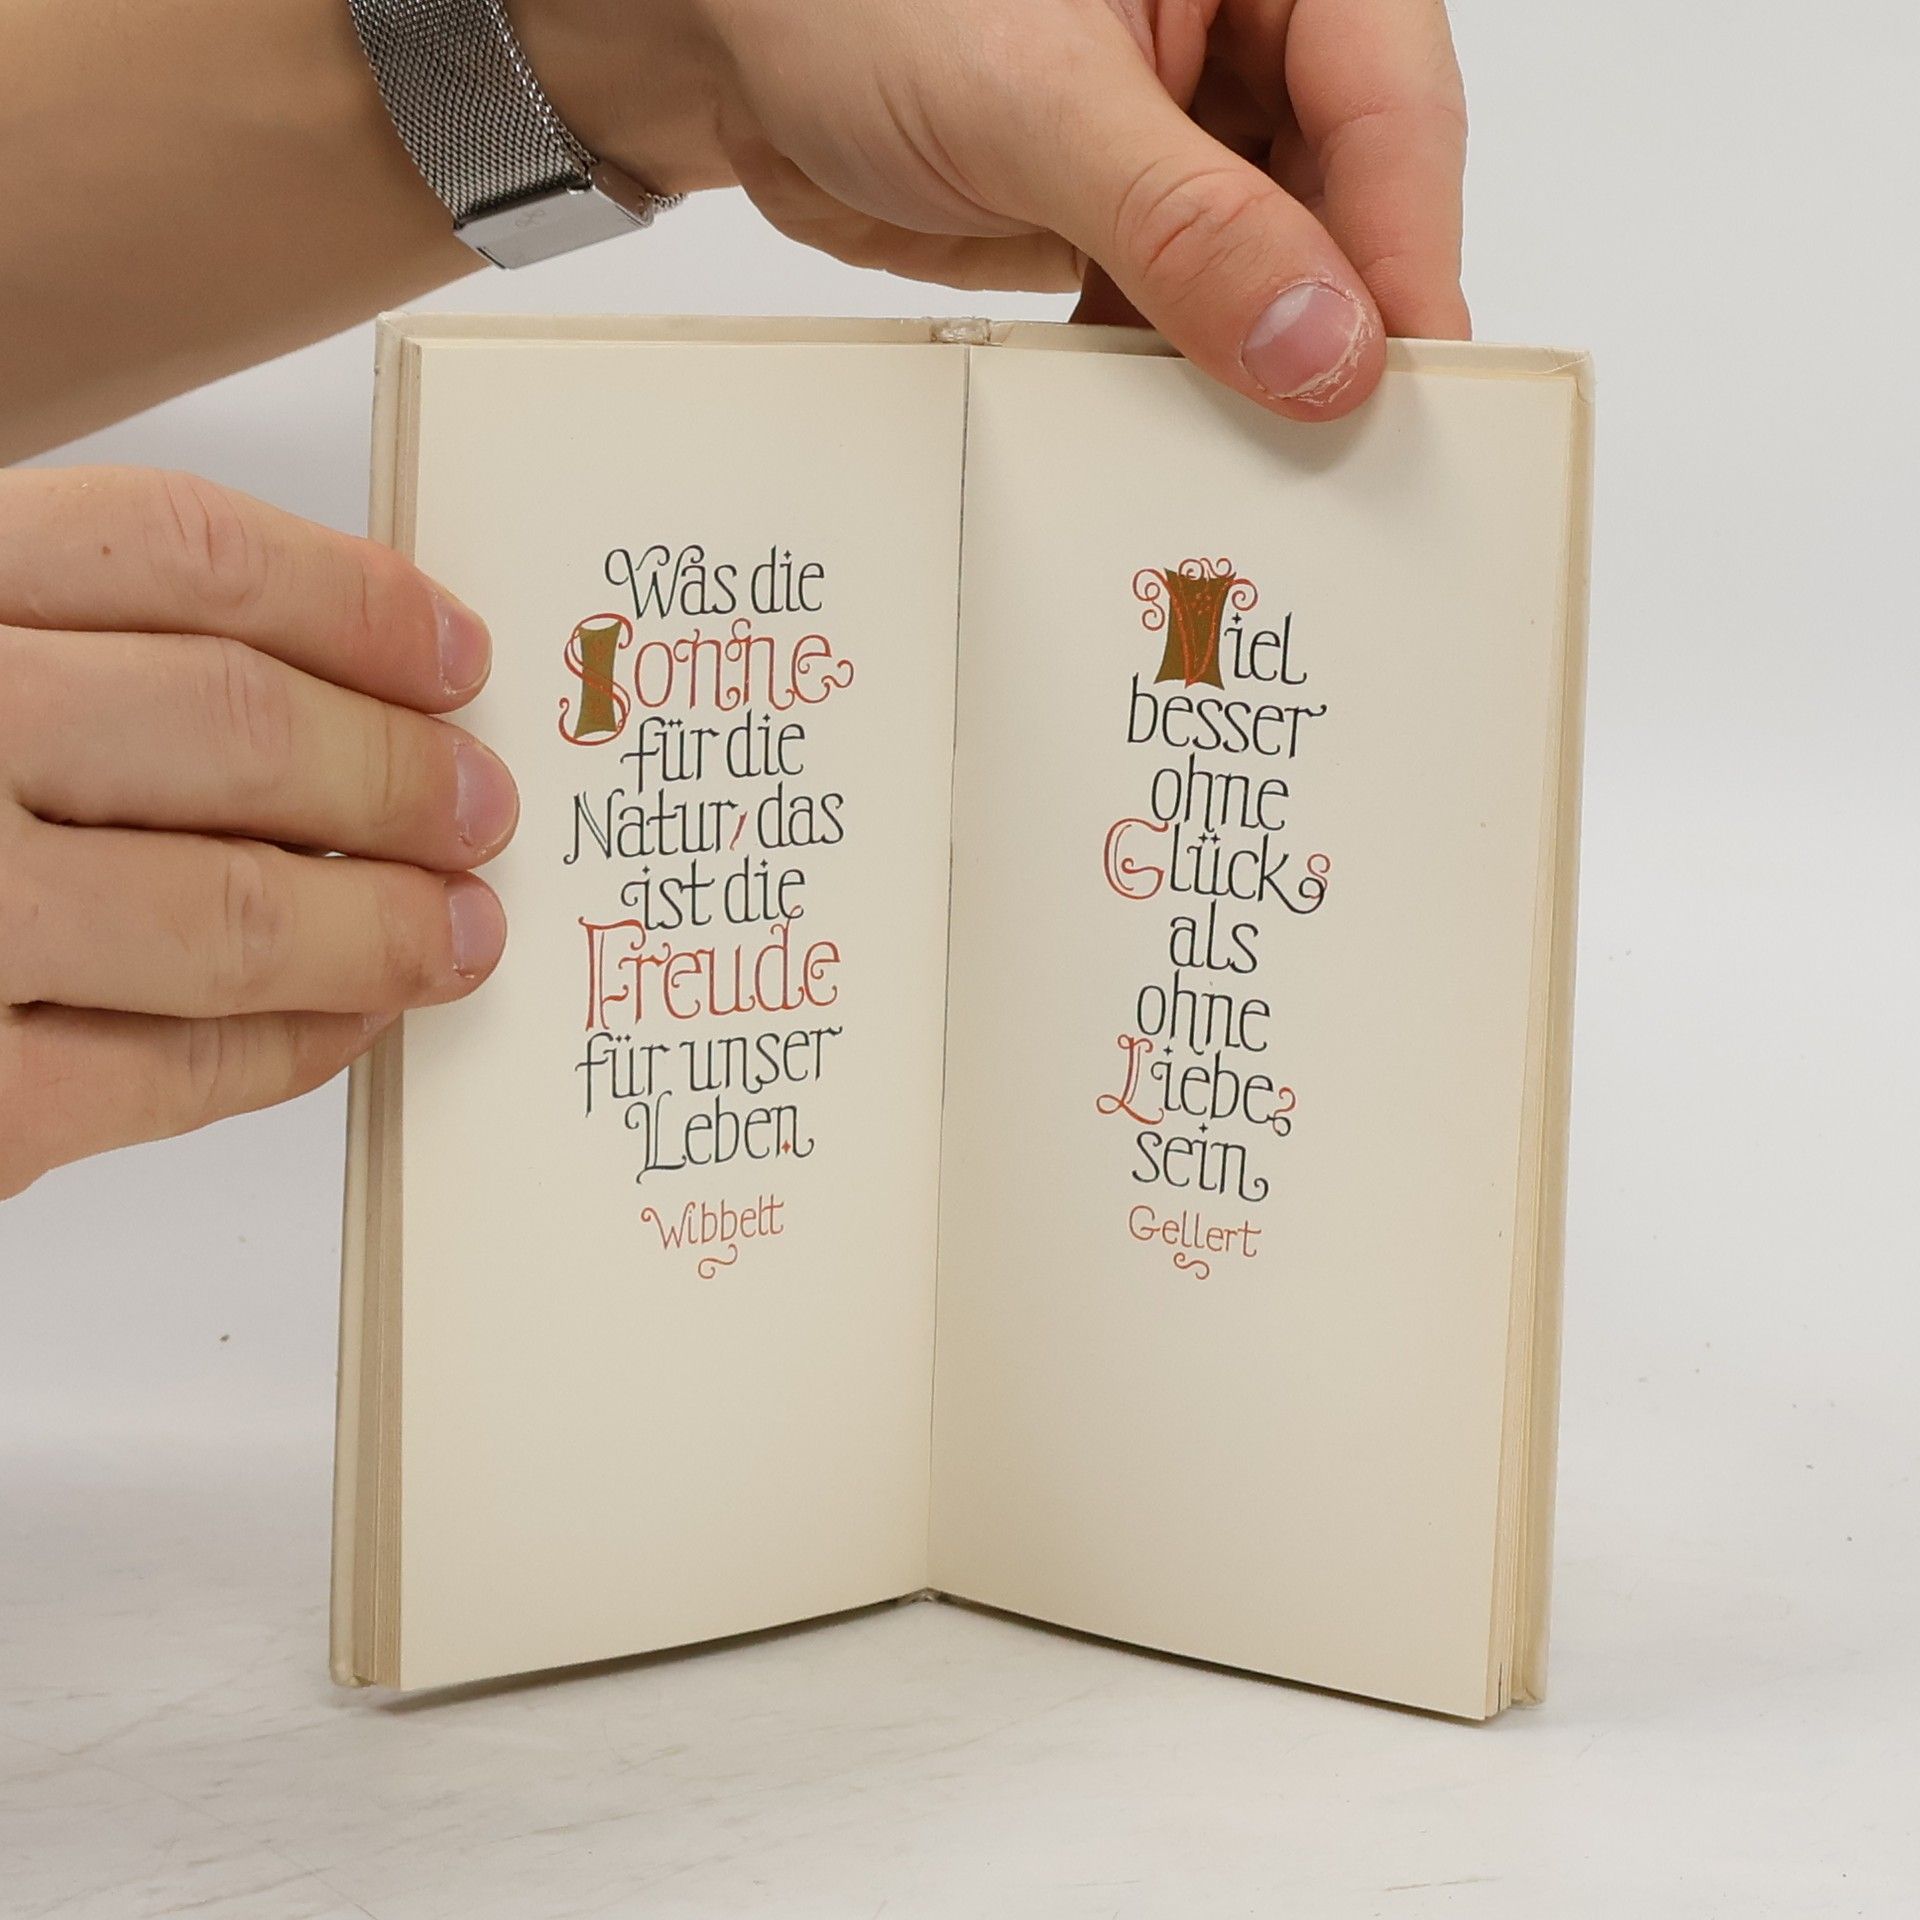 Was die
Sonne
für die
Natur, das
ist die
Freude
für unser
Leben.
Wibbelt
Viel
besser
ohne
Glück,
als
ohne
Liebe
sein
Gellert